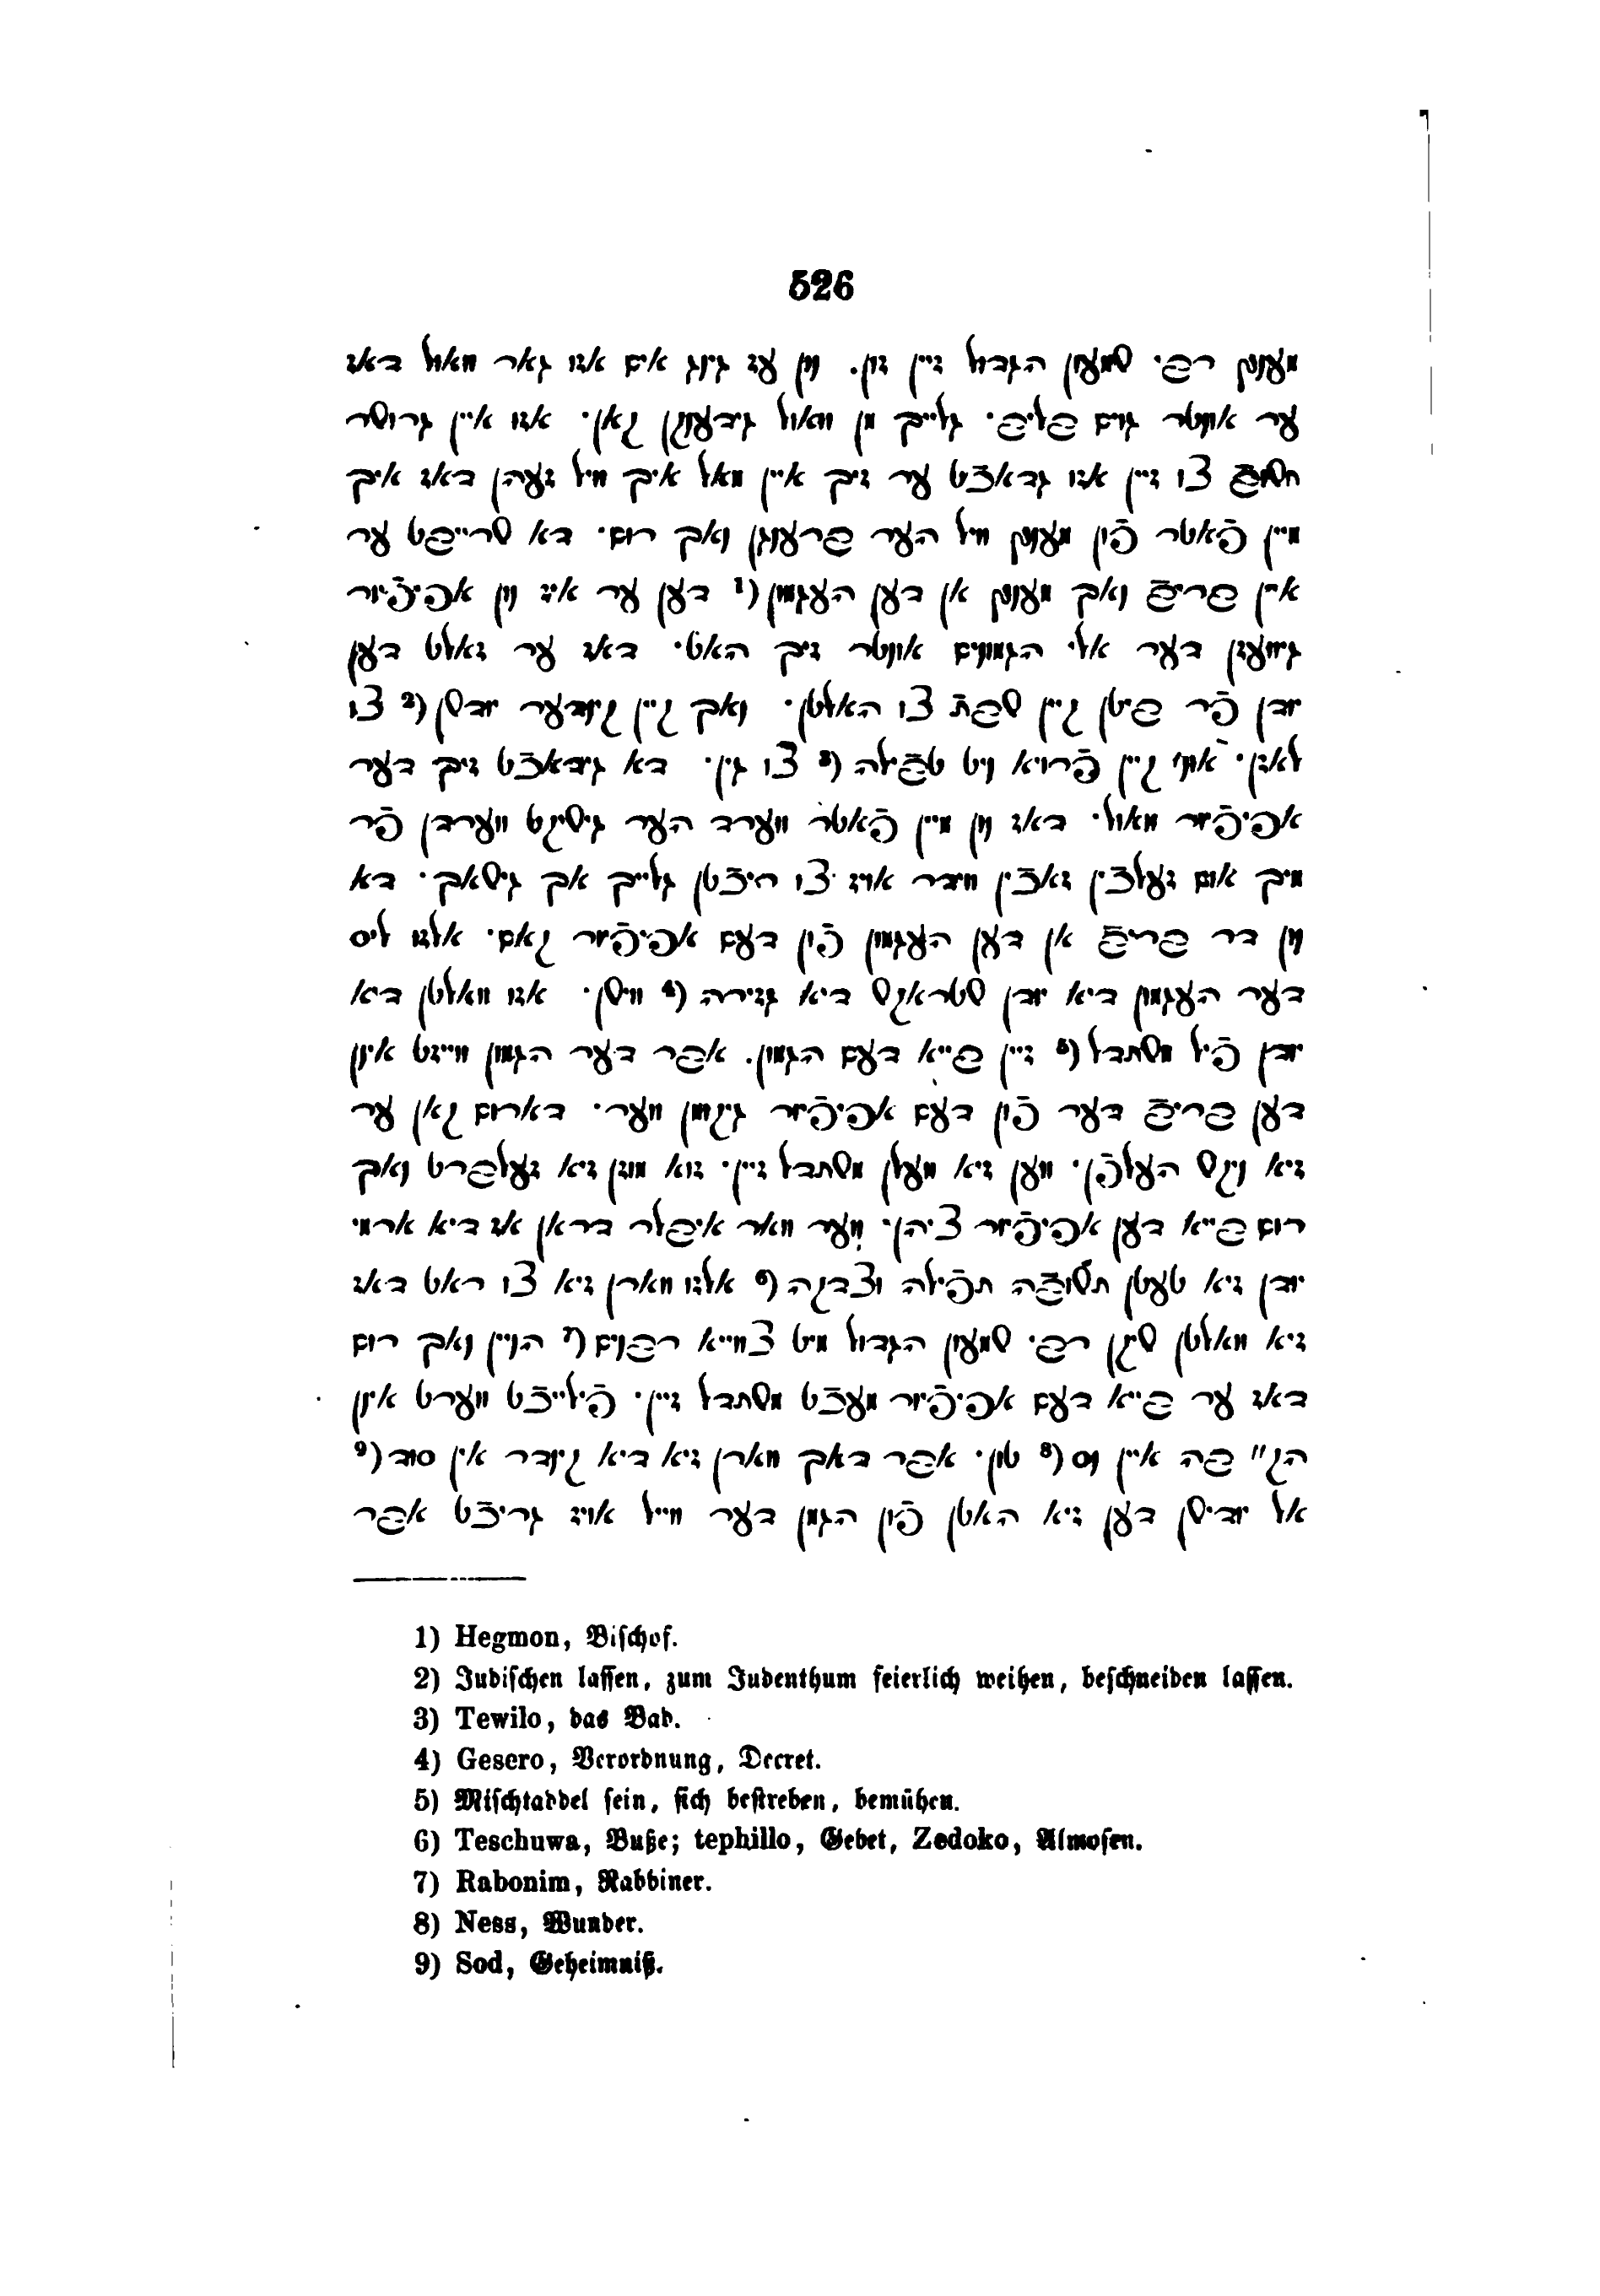 526
מענץ רבי שמעון הגדול זיין זון. נון עז גינג אים אזו גאר וואול דאז
ער אונטר גוים בליב׳ גלייך מן וואול גידענקן קאן׳ אזו איין גרושר
חשוב צו זיין אזו גדאכֿט ער זיך איין מאל איך וויל זעהן דאז איך
מיין פֿאטר פֿון מענץ וויל הער ברענגן נאך רום׳ דא שרייבט ער
איין בריבֿ נאך מענץ אן דען העגמון (1 דען ער איז נון אפיפֿיור
גיוועזן דער אלי הגמונים אונטר זיך האט׳ דאז ער זאלט דען
יודן פֿר ביטן קיין שבתֿ צו האלטן׳ נאך קיין קינדער יודשן (2 צו
לאזן׳ אונ׳ קיין פֿרויא ניט טבֿילה (3 צו גין׳ דא גידאכֿט זיך דער
אפיפֿיור וואול׳ דאז נון מיין פֿאטר ווערד הער גישיקט ווערדן פֿר
מיך אום זעלכֿין זאכֿין ווידר אויז צו ריכֿטן גלייך אך גישאך׳ דא
נון דר בריבֿ אן דען העגמון פֿון דעם אפיפֿיור קאם׳ אלזו ליס
דער העגמון דיא יודן שטראקש דיא גזירה (4 ווישן׳ אזו וואלטן דיא
יודן פֿיל משתדל (5 זיין בייא דעם הגמון. אבר דער הגמון ווייזט אינן
דען בריבֿ דער פֿון דעם אפיפֿיור גיקומן ווער׳ דארום קאן ער
זיא ניקש העלפֿן׳ ווען זיא וועלן משתדל זיין׳ זוא מוזן זיא זעלברט נאך
רום בייא דען אפיפֿיור ציהן׳ ווער וואר איבלר דראן אז דיא ארמי
יודן זיא טעטן תשובֿה תפֿילה וצדקה (6 אלזו ווארן זיא צו ראט דאז
זיא וואלטן שיקן רבי שמעון הגדול מיט צווייא רבנים (7 הניין נאך רום
דאז ער בייא דעם אפיפֿיור מעכֿט משתדל זיין׳ פֿילייכֿט ווערט אינן
הק״בה איין נס (8 טון׳ אבר דאך ווארן זיא דיא קינדר אין סוד (9
אל יודישן דען זיא האטן פֿון הגמן דער ווייל אויז גריכֿט אבר
1) Hegmon, Bischof.
2) Judischen lassen, zum Judenthum feierlich weihen, beschneiden lassen.
3) Tewilo, das Bad.
4) Gesero, Verordnung, Decret.
5) Mischtaddel sein, sich bestreben, bemühen.
6) Teschuwa, Buße; tephillo, Gebet, Zedoko, Almosen.
7) Rabonim, Rabbiner.
8) Ness, Wunder.
9) Sod, Geheimniß.